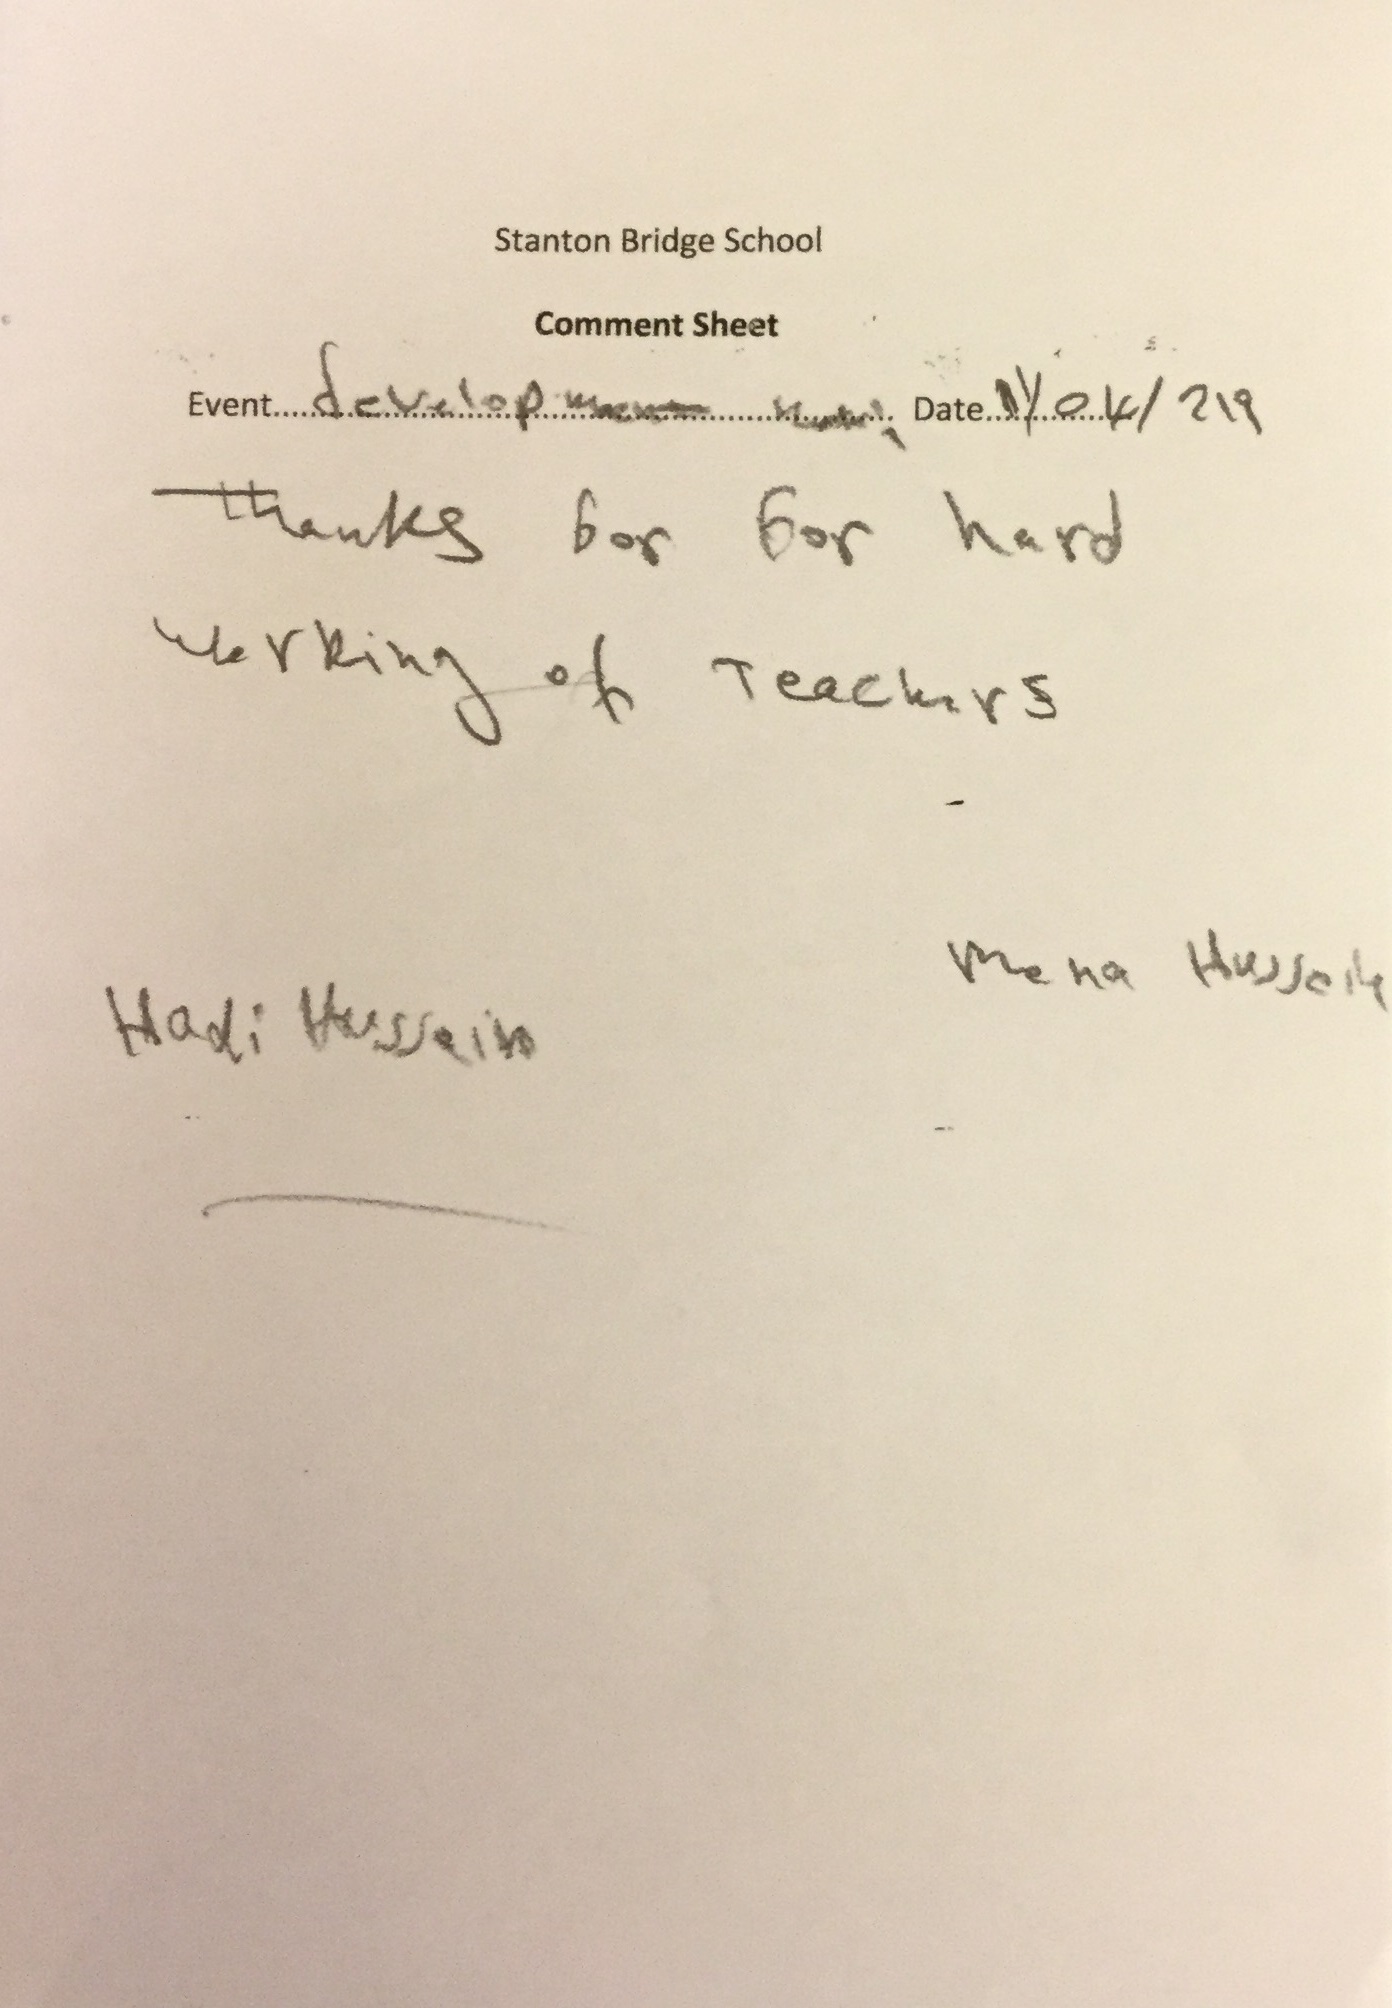 Stanton Bridge School
Comment Sheet
Event develop Date 1/04/219
thanks for for hard
working of Teachers
Mena Hussain
Hadi Hussain